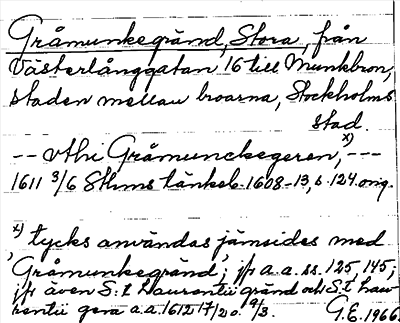 Gråmunkegränd, Stora, från
Västerlånggatan 16 till Munkbron,
staden mellan broarna, Stockholms
stad.
-- vthi Gråmunckegeren, x) ---
1611 3/6 Sthms tänkeb. 1608-13, s. 124 orig.
x) tycks användas jämsides med
Gråmunkegränd; jfr a.a. ss. 125, 145;
jfr även S:t Laurentii gränd och S:t Lau-
rentii gera a.a. 1612 17/20 9/3. G.E. 1966